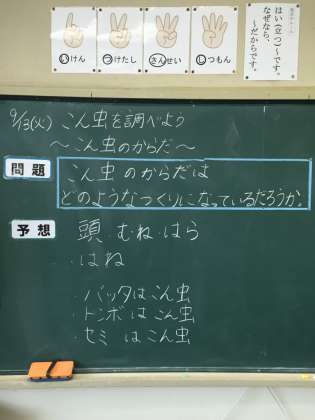 いけん
つけたし
さんせい
しつもん
はい(立つ)～です。
なぜなら、
～だからです。
9/13(火) こん虫を調べよう
～こん虫のからだ～
問題
こん虫のからだは
どのようなつくりになっているだろうか。
予想
頭・むね・はら
・はね
・バッタはこん虫
・トンボはこん虫
・セミはこん虫